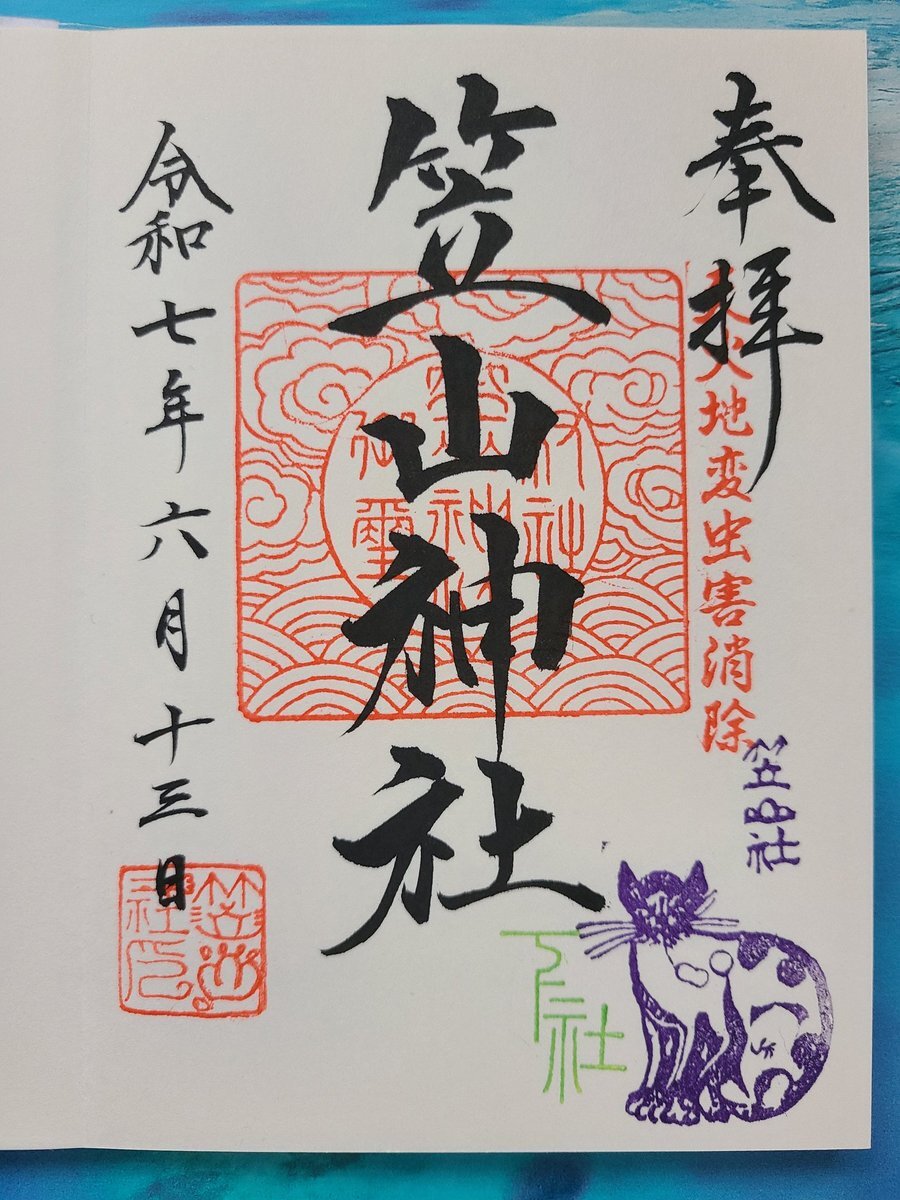 奉拝
地変虫害消除
笠山社
笠山神社
令和七年六月十三日
下社